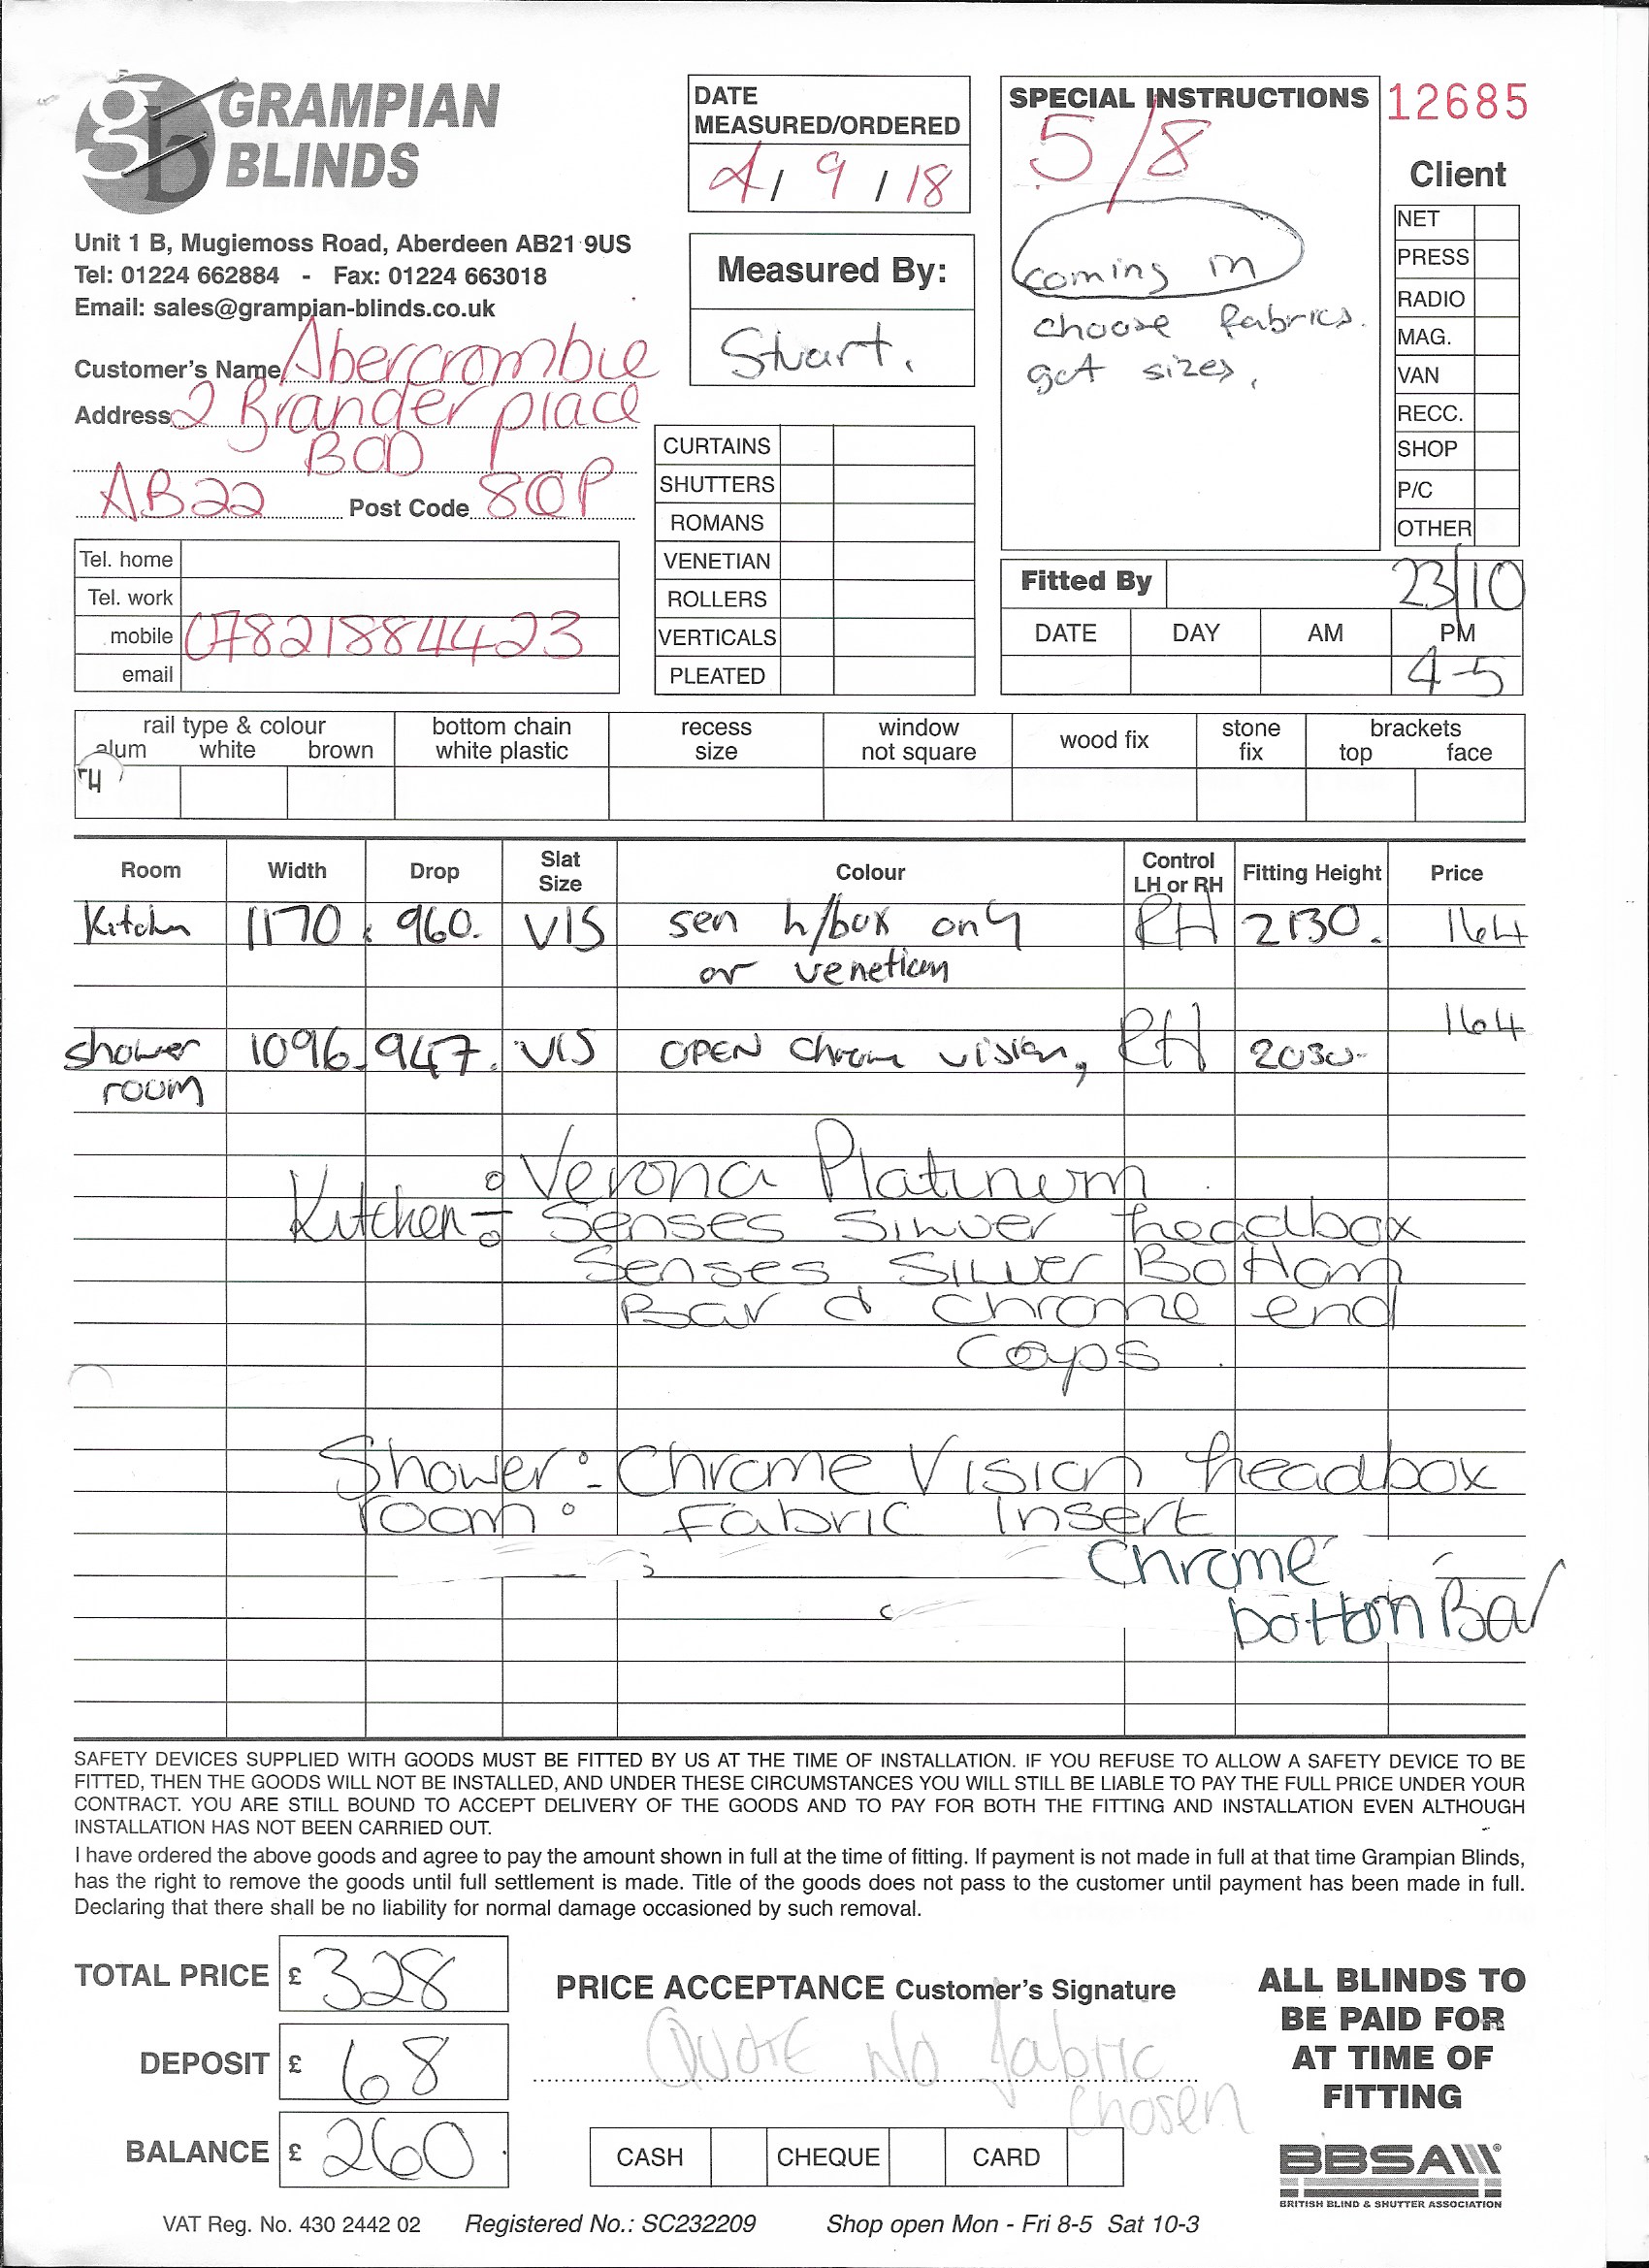 GRAMPIAN
BLINDS
Unit 1 B, Mugiemoss Road, Aberdeen AB21 9US
Tel: 01224 662884 - Fax: 01224 663018
Email: sales@grampian-blinds.co.uk
Customer's Name Abercrombie
Address 2 Brander place
BOD
AB22 Post Code 8QP
Tel. home
Tel. work
mobile 07821884423
email
DATE
MEASURED/ORDERED
4/9/18
Measured By:
Stuart.
CURTAINS
SHUTTERS
ROMANS
VENETIAN
ROLLERS
VERTICALS
PLEATED
SPECIAL INSTRUCTIONS
5/8
coming in
choose fabrics.
got sizes,
12685
Client
NET
PRESS
RADIO
MAG.
VAN
RECC.
SHOP
P/C
OTHER
Fitted By 23/10
DATE DAY AM PM
4-5
rail type & colour bottom chain recess window wood fix stone brackets
alum white brown white plastic size not square fix top face
Room Width Drop Slat Size Colour Control LH or RH Fitting Height Price
Kitchn 1170 x 960. VIS sen h/box only RH 2130. 164
or venetian
164
shower 1096. 947. VIS OPEN Chrom vision, RH 2030-
room
Verona Platinum
Kitchen :- Senses Silver headbox
Senses Silver Bottom
Bar & chrome end
caps
Shower :- Chrome Vision headbox
room: Fabric Insert
Chrome
bottom Bar
SAFETY DEVICES SUPPLIED WITH GOODS MUST BE FITTED BY US AT THE TIME OF INSTALLATION. IF YOU REFUSE TO ALLOW A SAFETY DEVICE TO BE
FITTED, THEN THE GOODS WILL NOT BE INSTALLED, AND UNDER THESE CIRCUMSTANCES YOU WILL STILL BE LIABLE TO PAY THE FULL PRICE UNDER YOUR
CONTRACT. YOU ARE STILL BOUND TO ACCEPT DELIVERY OF THE GOODS AND TO PAY FOR BOTH THE FITTING AND INSTALLATION EVEN ALTHOUGH
INSTALLATION HAS NOT BEEN CARRIED OUT.
I have ordered the above goods and agree to pay the amount shown in full at the time of fitting. If payment is not made in full at that time Grampian Blinds,
has the right to remove the goods until full settlement is made. Title of the goods does not pass to the customer until payment has been made in full.
Declaring that there shall be no liability for normal damage occasioned by such removal.
TOTAL PRICE £ 328
DEPOSIT £ 68
BALANCE £ 260
PRICE ACCEPTANCE Customer's Signature
QUOTE NO fabric
chosen
CASH CHEQUE CARD
ALL BLINDS TO
BE PAID FOR
AT TIME OF
FITTING
BBSA
BRITISH BLIND & SHUTTER ASSOCIATION
VAT Reg. No. 430 2442 02 Registered No.: SC232209 Shop open Mon - Fri 8-5 Sat 10-3